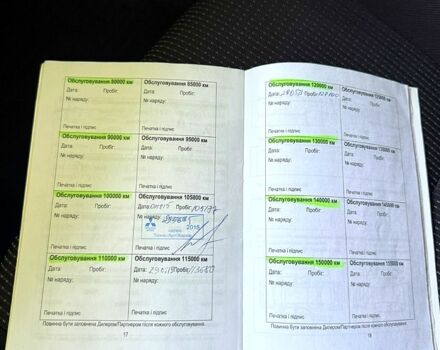 Обслуговування 80000 км
Дата: Пробіг:
№ наряду:
Печатка і підпис
Обслуговування 85000 км
Дата: Пробіг:
№ наряду:
Печатка і підпис
Обслуговування 90000 км
Дата: Пробіг:
№ наряду:
Печатка і підпис
Обслуговування 95000 км
Дата: Пробіг:
№ наряду:
Печатка і підпис
Обслуговування 100000 км
Дата: Пробіг:
№ наряду:
Печатка і підпис
Обслуговування 105000 км
Дата: Пробіг:
№ наряду:
2018
Печатка і підпис
Обслуговування 110000 км
Дата: Пробіг:
№ наряду:
Печатка і підпис
Обслуговування 115000 км
Дата: Пробіг:
№ наряду:
Печатка і підпис
Повинна бути заповнена Дилером/Партнером після кожного обслуговування.
17
Обслуговування 120000 км
Дата: Пробіг:
№ наряду:
Печатка і підпис
Обслуговування 125000 км
Дата: Пробіг:
№ наряду:
Печатка і підпис
Обслуговування 130000 км
Дата: Пробіг:
№ наряду:
Печатка і підпис
Обслуговування 135000 км
Дата: Пробіг:
№ наряду:
Печатка і підпис
Обслуговування 140000 км
Дата: Пробіг:
№ наряду:
Печатка і підпис
Обслуговування 145000 км
Дата: Пробіг:
№ наряду:
Печатка і підпис
Обслуговування 150000 км
Дата: Пробіг:
№ наряду:
Печатка і підпис
Обслуговування 155000 км
Дата: Пробіг:
№ наряду:
Печатка і підпис
Повинна бути заповнена Дилером/Партнером після кожного обслуговування.
18